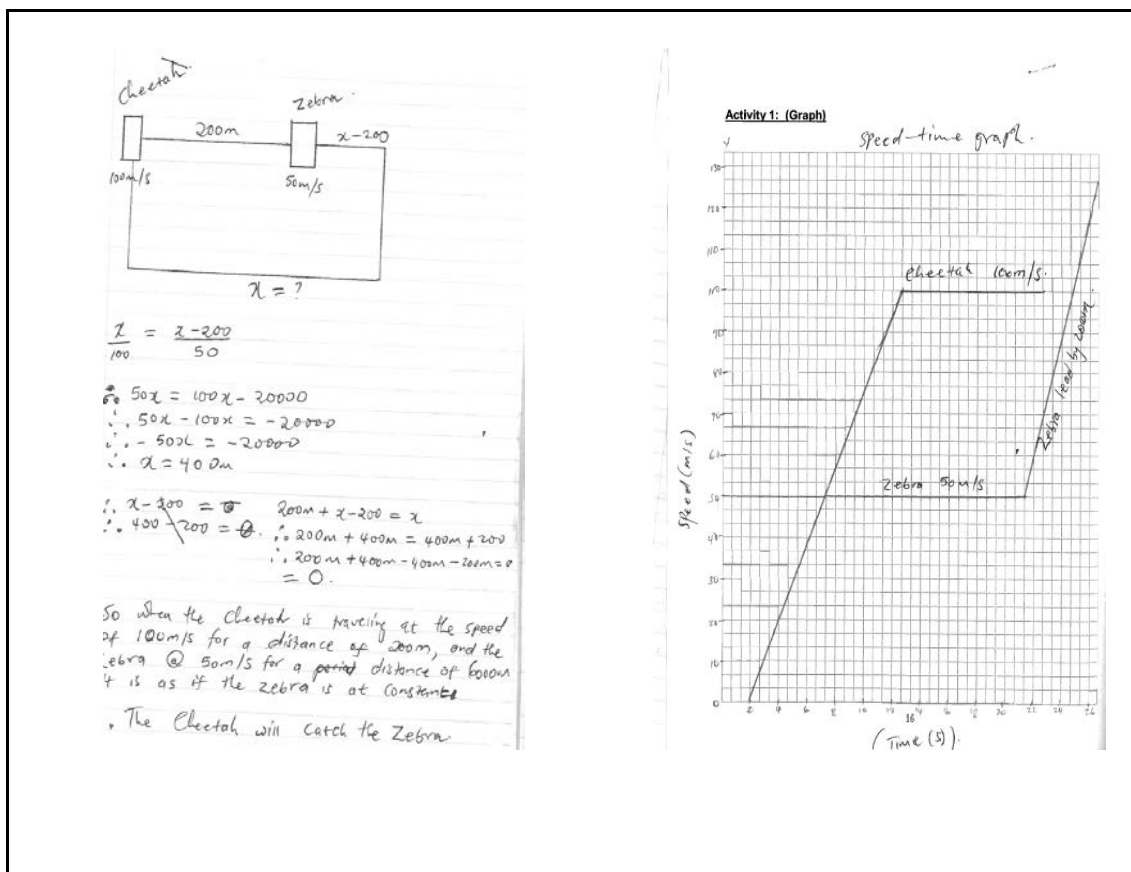 Cheetah
Zebra
200m
x-200
100m/s
50m/s
x = ?
x/100 = x-200/50
50x = 100x - 20000
∴ 50x - 100x = -20000
∴ -50x = -20000
∴ x = 400m
∴ x-200 = 0
∴ 400-200 = 0.
200m + x-200 = x
∴ 200m + 400m = 400m + 200
∴ 200m + 400m - 400m - 200m = 0
= 0.
So when the Cheetah is traveling at the speed
of 100m/s for a distance of 200m, and the
zebra @ 50m/s for a period distance of 6000m
it is as if the zebra is at constant
. The Cheetah will catch the Zebra
Activity 1: (Graph)
Speed-time graph.
Speed (m/s)
130
120
110
110
90
80
70
60
50
40
30
20
10
0
Cheetah 100m/s.
Zebra 50m/s
Zebra lead by 200m.
2 4 6 8 10 12 14 6 18 20 22 24 26
16
(Time (s)).